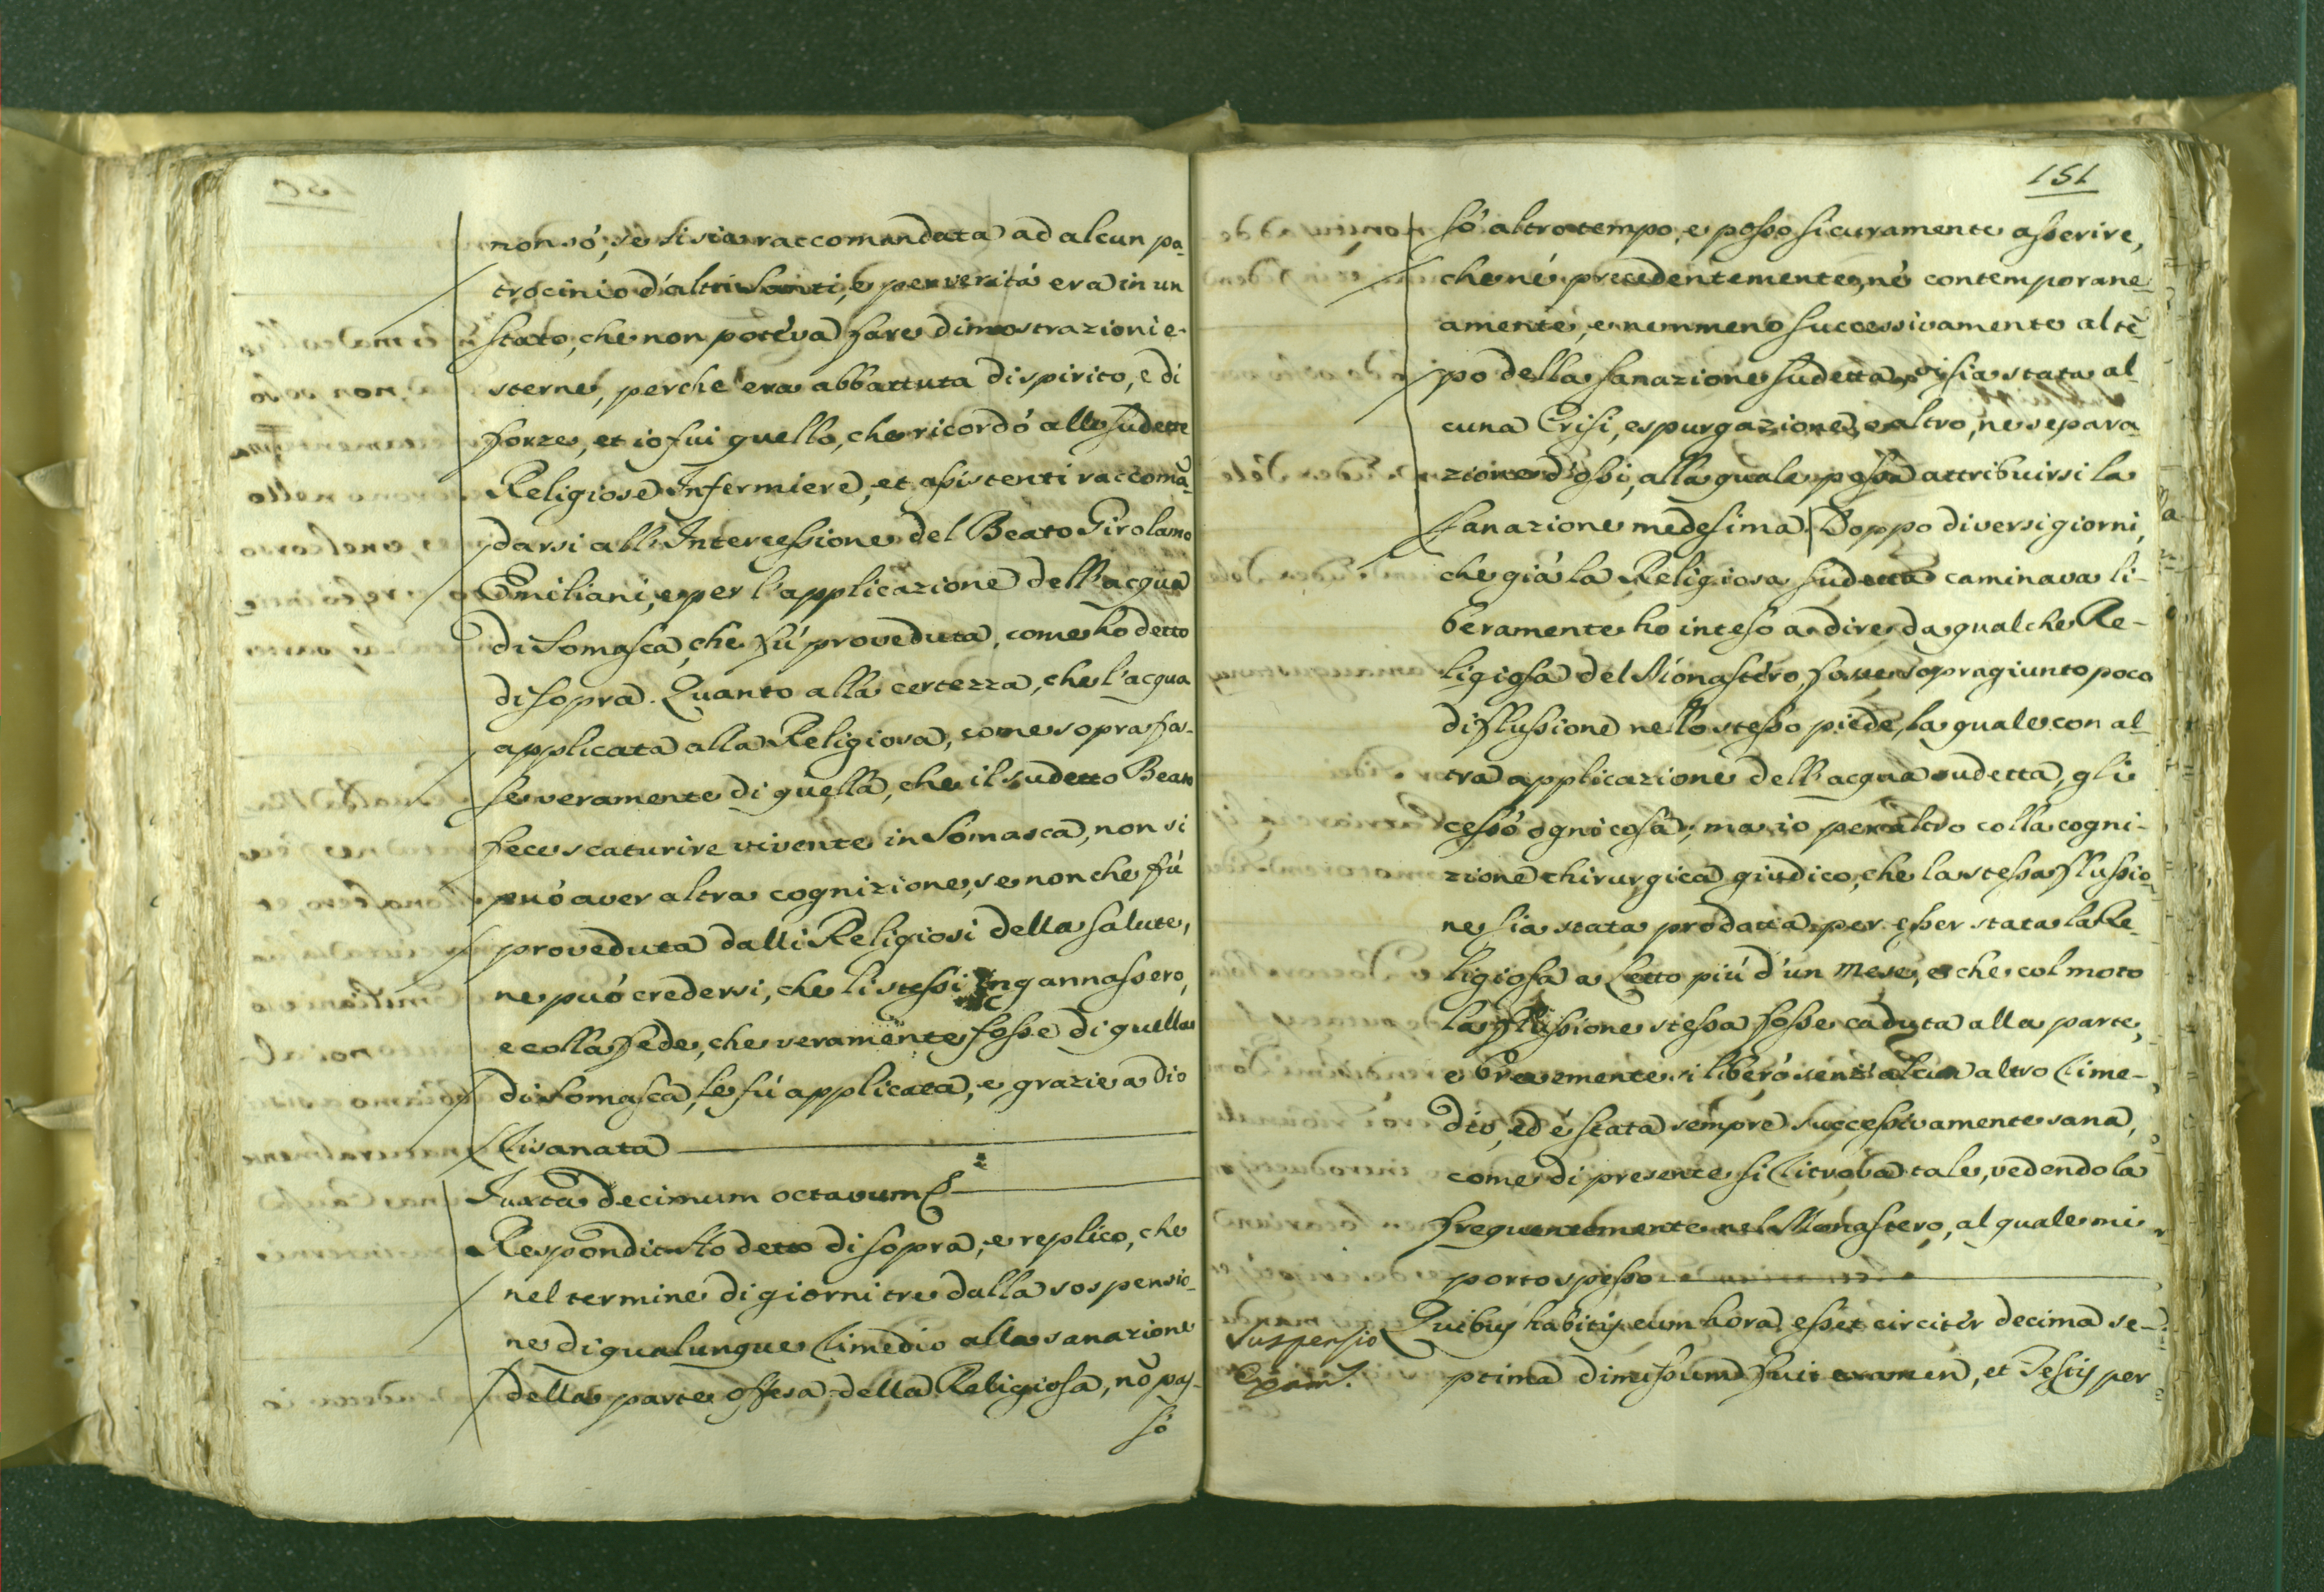 non só, se si sia raccomandata ad alcun pa-
trocinio d'altri Santi, e per veritá era in un
stato, che non poteva fare dimostrazioni e-
sterne, perche era abbattuta di spirito, e di
forze, et io fui quello, che ricordó alle sudette
Religiose Infermiere, et assistenti raccomã-
darsi all'Intercessione del Beato Girolamo
Emiliani, e per l'applicazione dell'acqua
di Somasca, che fú proveduta, come ho detto
di sopra. Quanto alla certezza, che l'acqua
applicata alla Religiosa, come sopra fos-
se veramente di quella, che il sudetto Beato
fece scaturire vivente in Somasca, non si
puó aver altra cognizione, se non che fú
proveduta dalli Religiosi della Salute,
ne puó credersi, che li stessi ingannassero,
e colla fede, che veramente fosse di quella
di Somasca, le fú applicata, e grazie a Dio
risanata
Juxta decimum octavum
Respondit Ho detto di sopra, e replico, che
nel termine di giorni tre dalla sospensio-
ne di qualunque rimedio alla sanazione
della parte offesa della Religiosa, nõ pas-
só
151
só altro tempo, e posso sicuramente asserire,
che né precedentemente, né contemporane-
amente, e nemmeno successivamente al tẽ-
po della sanazione sudetta, vi sia stata al-
cuna Crisi, espurgazione, o altro, ne separa-
zione d'ossi, alla quale possa attribuirsi la
sanazione medesima. Doppo diversi giorni,
che giá la Religiosa sudetta caminava li-
beramente ho inteso a dire da qualche Re-
ligiosa del Monastero, sopragiunto poco
di flussione nello stesso piede, la quale con al-
tra applicazione dell'acqua sudetta, gli
cessó ogni cosa; ma io per altro colla cogni-
zione chirurgica giudico, che la stessa flussio-
ne sia stata prodotta per esser stata la Re-
ligiosa a letto piú d'un mese, e che col moto
la flussione stessa fosse caduta alla parte,
e brevemente si liberó senz'alcun altro rime-
dio, ed é stata sempre successivamente sana,
come di presente si ritrova tale, vedendola
frequentemente nel Monastero, al quale mi
porto spesso
Suspensio
Exam.
Quibus habitis cum hora esset circiter decima se-
ptima dimissum fuit examen, et Testis per